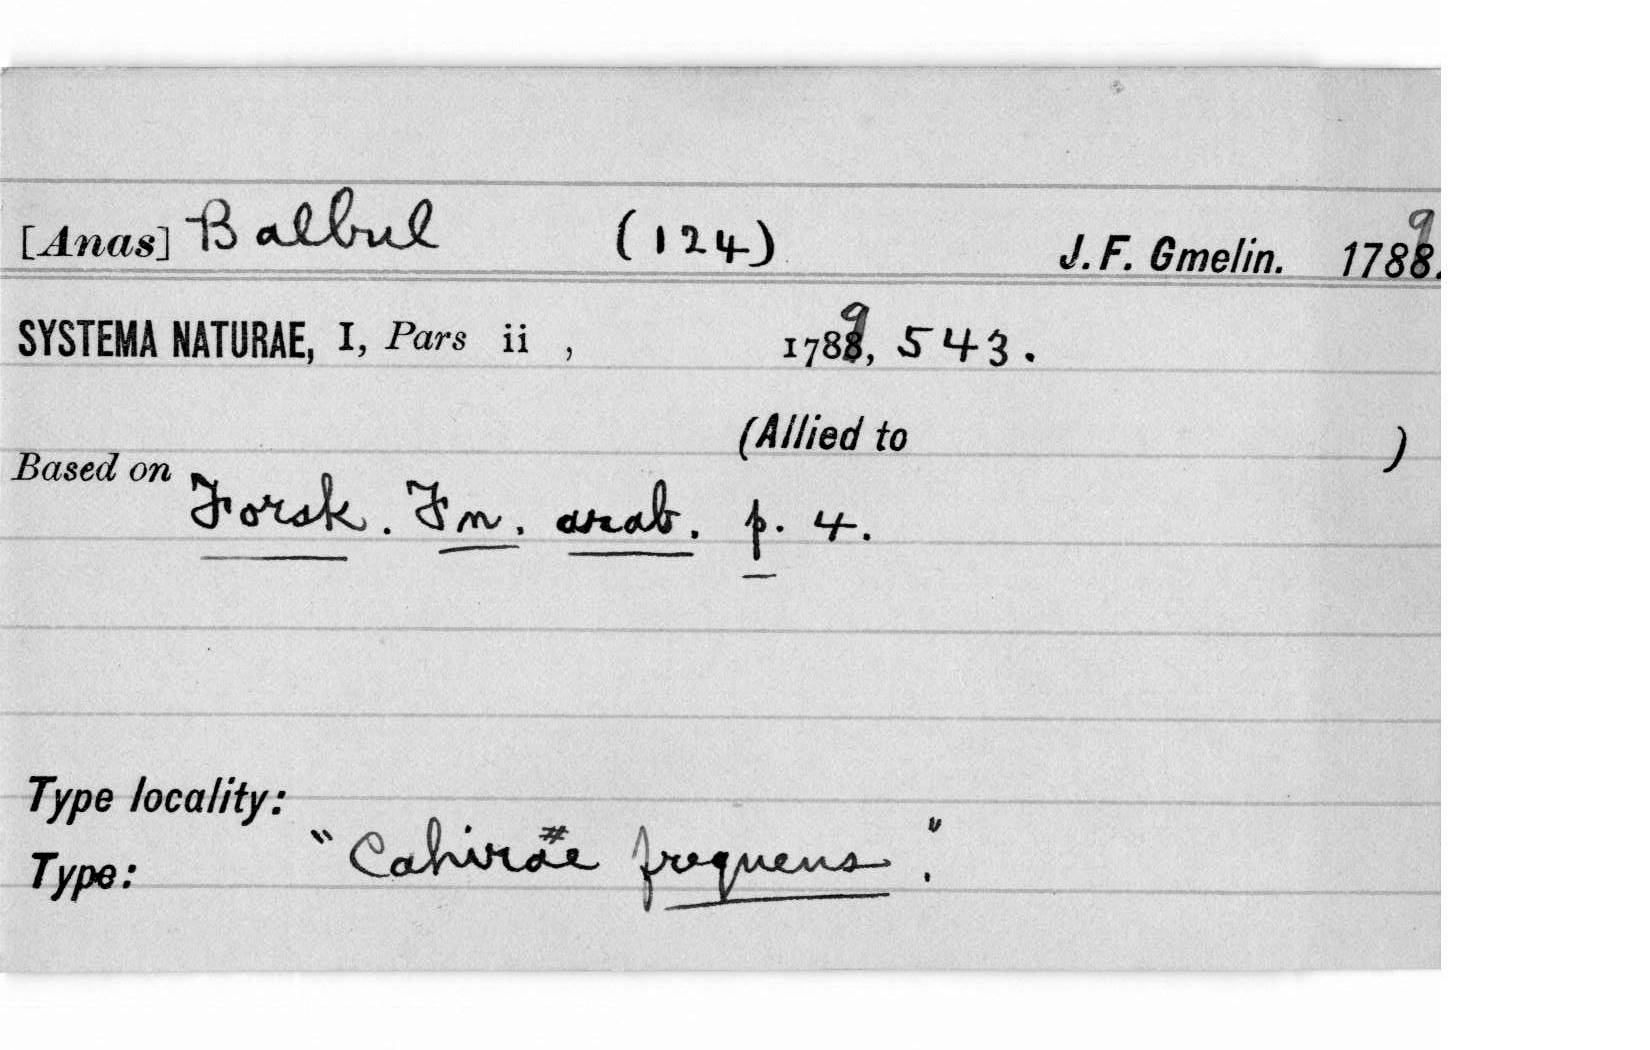 [Anas] Balbul (124) J. F. Gmelin. 1789.
SYSTEMA NATURAE, I, Pars ii , 1789, 543.
(Allied to )
Based on Forsk. Fn. arab. p. 4.
Type locality:
Type: "Cahirae frequens."